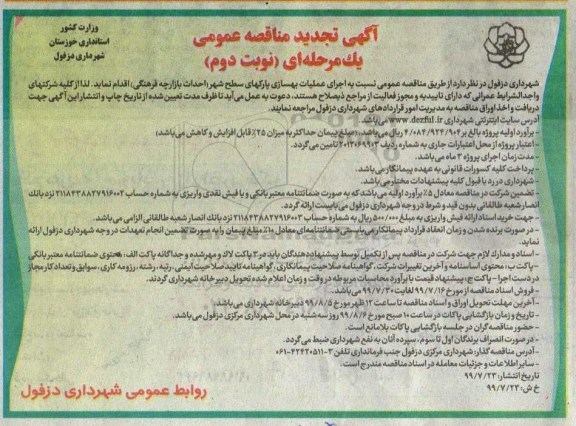 وزارت کشور
استانداری خوزستان
شهرداری دزفول
آگهی تجدید مناقصه عمومی
یك مرحله‌ای (نوبت دوم)
شهرداری دزفول در نظر دارد از طریق مناقصه عمومی نسبت به اجرای عملیات بهسازی پارکهای سطح شهر(احداث بازارچه فرهنگی) اقدام نماید. لذا از کلیه شرکتهای
واجدالشرایط عمرانی که دارای تاییدیه و مجوز فعالیت از مراجع ذیصلاح هستند، دعوت به عمل می‌آید تا ظرف مدت تعیین شده از تاریخ چاپ و انتشار این آگهی جهت
دریافت و اخذ اوراق مناقصه به مدیریت امور قراردادهای شهرداری دزفول مراجعه نمایند.
آدرس سایت اینترنتی شهرداری www.dezful.ir می‌باشد
- برآورد اولیه پروژه بالغ بر ۴/۰۸۲/۹۲۴/۹۰۴ ریال می‌باشد. (مبلغ پیمان حداکثر به میزان ۲۵٪ قابل افزایش و کاهش می‌باشد)
- اعتبار پروژه از محل اعتبارات جاری به شماره ردیف ۲۰۱۳۰۶۹۰۳ تامین می‌گردد.
- مدت زمان اجرای پروژه ۳ ماه می‌باشد.
- پرداخت کلیه کسورات قانونی به عهده پیمانکار می‌باشد.
- شهرداری در رد یا قبول کلیه پیشنهادات مختار می‌باشد.
- تضمین شرکت در مناقصه معادل ۵٪ برآورد اولیه می‌باشد که به صورت ضمانتنامه معتبر بانکی و یا فیش نقدی واریزی به شماره حساب ۳۱۱۸۴۳۸۸۲۷۹۱۶۰۰۲ نزد بانك
انصار شعبه طالقانی بدون قید و شرط در وجه شهرداری دزفول می‌بایست ارائه گردد.
- جهت خرید اسناد ارائه فیش واریزی به مبلغ ۵۰۰/۰۰۰ ریال به شماره حساب ۳۱۱۸۴۳۸۸۲۷۹۱۶۰۰۳ نزد بانك انصار شعبه طالقانی الزامی می‌باشد.
- در صورت برنده شدن و زمان انعقاد قرارداد پیمانکار می‌بایستی ضمانتنامه‌ای معادل ۱۰٪ مبلغ پیمان را به صورت تضمین انجام تعهدات در وجه شهرداری دزفول ارائه
نماید.
- اسناد و مدارك لازم جهت شرکت در مناقصه پس از تکمیل توسط پیشنهاددهندگان باید در ۳ پاکت لاك و مهر شده و جداگانه پاکت الف: محتوی ضمانتنامه معتبر بانکی
- پاکت ب: محتوی اساسنامه و آخرین تغییرات شرکت، گواهینامه صلاحیت پیمانکاری، گواهینامه تایید صلاحیت ایمنی، رتبه، رشته، رزومه کاری، سوابق و تعداد کار مجاز
در دست اجرا - پاکت ج: پیشنهاد قیمت با برآورد محاسبات مربوطه در وقت و زمان اعلام شده تحویل دبیرخانه شهرداری گردند.
- فروش اسناد مناقصه از مورخ ۹۹/۷/۱۶ لغایت ۹۹/۷/۳۰ می‌باشد.
- آخرین مهلت تحویل اوراق و اسناد مناقصه تا ساعت ۱۲ ظهر مورخ ۹۹/۸/۵ دبیرخانه شهرداری می‌باشد.
- تاریخ و زمان بازگشایی پاکات در ساعت ۱۰ صبح مورخ ۹۹/۸/۶ روز سه شنبه در محل شهرداری مرکزی دزفول می‌باشد.
- حضور مناقصه گران در جلسه بازگشایی پاکات بلامانع است.
- در صورت انصراف برندگان اول تا سوم، سپرده آنان به نفع شهرداری ضبط می‌گردد.
- آدرس مناقصه گذار: شهرداری مرکزی دزفول جنب فرمانداری تلفن ۳-۰۶۱-۴۲۴۲۰۵۱۱
- سایر اطلاعات و جزئیات معامله در اسناد مناقصه مندرج است.
تاریخ انتشار: ۹۹/۷/۲۳
خ ش: ۹۹/۷/۲۳
روابط عمومی شهرداری دزفول